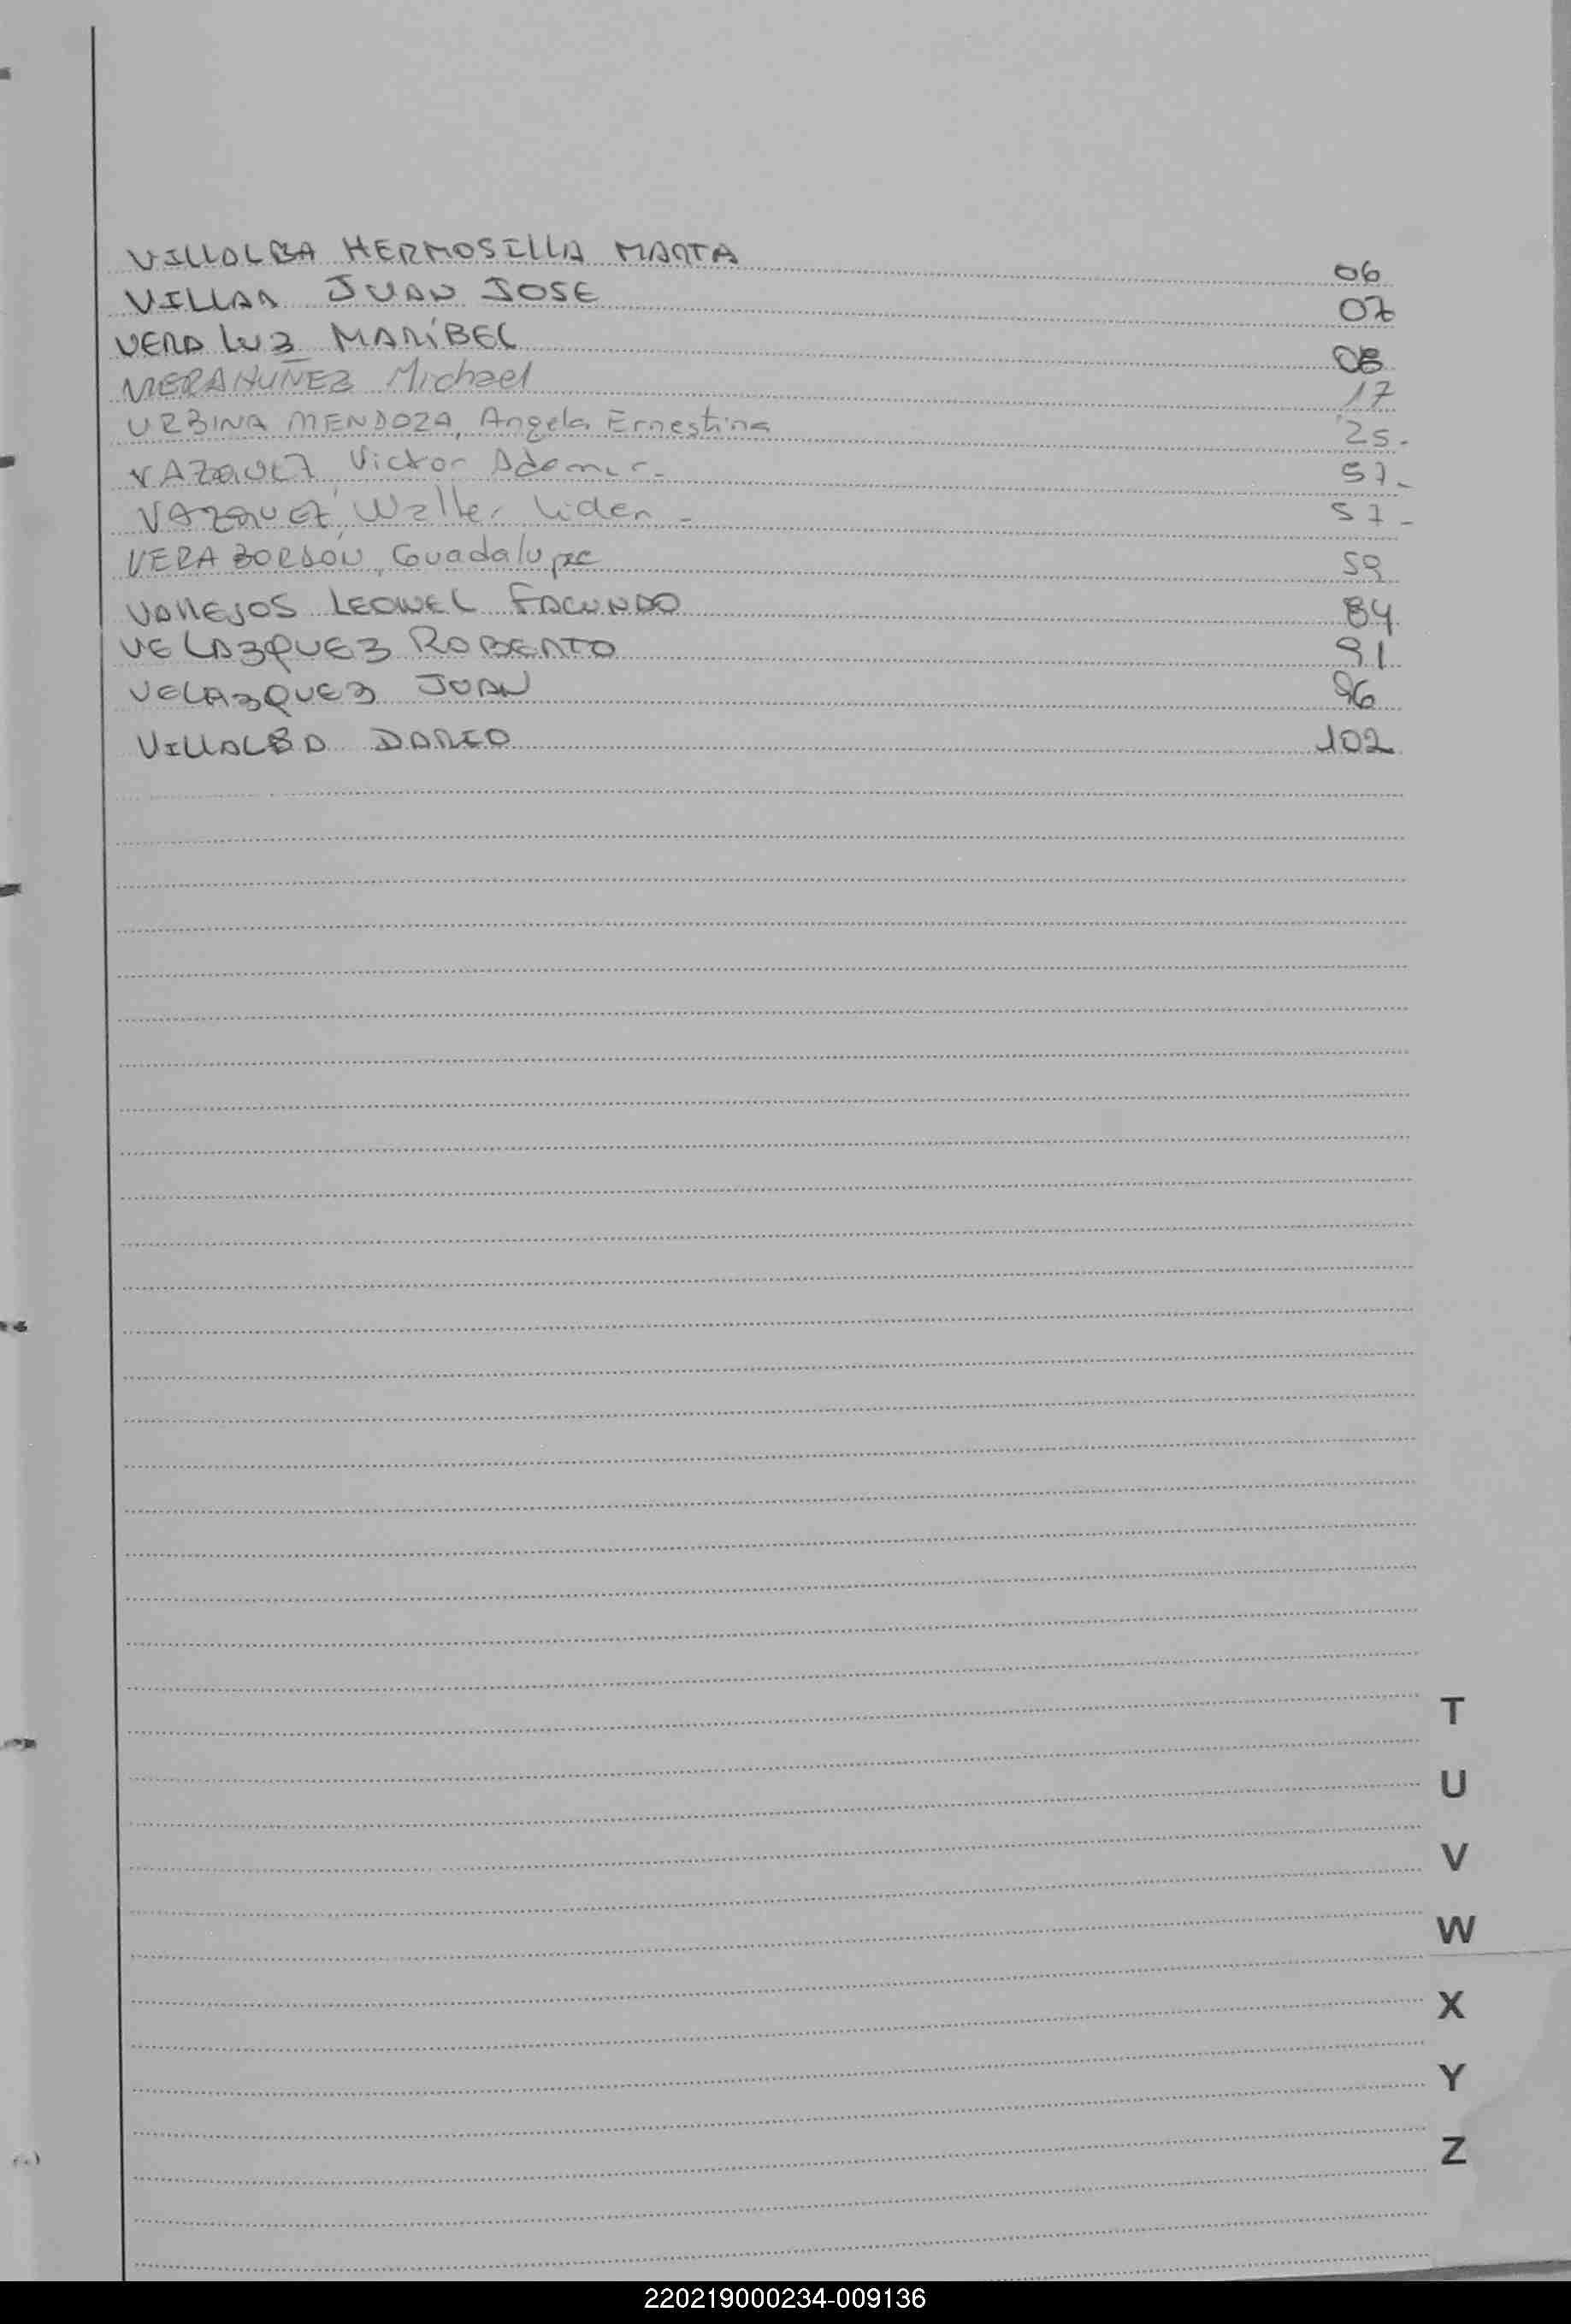 VILLALBA HERMOSILLA MARTA 06
VILLAR JUAN JOSE 07
VERA LUZ MARÍBEL 08
VERA NUÑEZ Michael 17
URBINA MENDOZA, Angela Ernestina 25.
VAZQUEZ Victor Ademir - 57-
VAZQUEZ, Walter Lider - 57-
VERA BORDÓN, Guadalupe 59
VALLEJOS LEONEL FACUNDO 84
VELAZQUEZ ROBERTO 91
VELAZQUEZ JUAN 96
VILLALBA DARIO 102
T
U
V
W
X
Y
Z
220219000234-009136